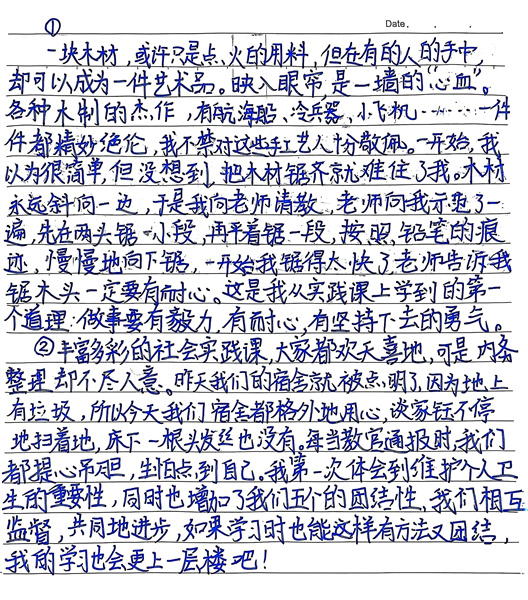 Date . . .
①
一块木材，或许只是点火的用料，但在有的人的手中，
却可以成为一件艺术品。映入眼帘是一墙的“心血”。
各种木制的杰作，有航海船、冷兵器、小飞机……一件
件都精妙绝伦，我不禁对这些手工艺人十分敬佩。一开始，我
以为很简单，但没想到，把木材锯齐就难住了我。木材
永远斜向一边，于是我向老师请教，老师向我示范了一
遍，先在两头锯一小段，再平着锯一段，按照铅笔的痕
迹，慢慢地向下锯，一开始我锯得太快了，老师告诉我
锯木头一定要有耐心。这是我从实践课上学到的第一
个道理：做事要有毅力，有耐心，有坚持下去的勇气。
②丰富多彩的社会实践课，大家都欢天喜地，可是内务
整理却不尽人意。昨天我们的宿舍就被点明了，因为地上
有垃圾，所以今天我们宿舍都格外地用心，谈家钰不停
地扫着地，床下一根头发丝也没有。每当教官通报时，我们
都提心吊胆，生怕点到自己。我第一次体会到维护个人卫
生的重要性，同时也增加了我们五个的团结性，我们相互
监督，共同地进步，如果学习时也能这样有方法又团结，
我的学习也会更上一层楼吧！